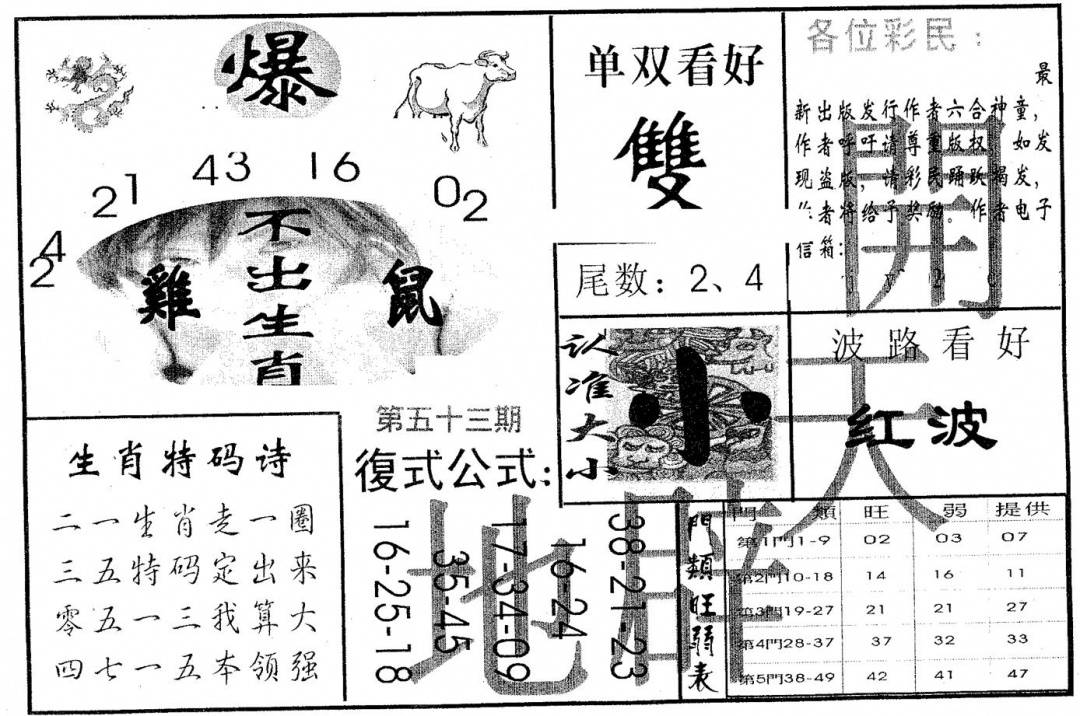 爆
24 21 43 16 02
不出生肖
雞 鼠
单双看好
雙
尾数：2、4
各位彩民：
最
新出版发行作者六合神童，
作者呼吁请尊重版权 如发
现盗版，请彩民踊跃揭发，
者将给予奖励。作者电子
信箱：
開
天
地
认准大小
小
波路看好
红波
第五十三期
復式公式：
16-25-18
35-45
17-34-09
16-24
38-21-23
生肖特码诗
二一生肖走一圈
三五特码定出来
零五一三我算大
四七一五本领强
門類旺弱表
門 類 旺 弱 提供
第1門1-9 02 03 07
第2門10-18 14 16 11
第3門19-27 21 21 27
第4門28-37 37 32 33
第5門38-49 42 41 47